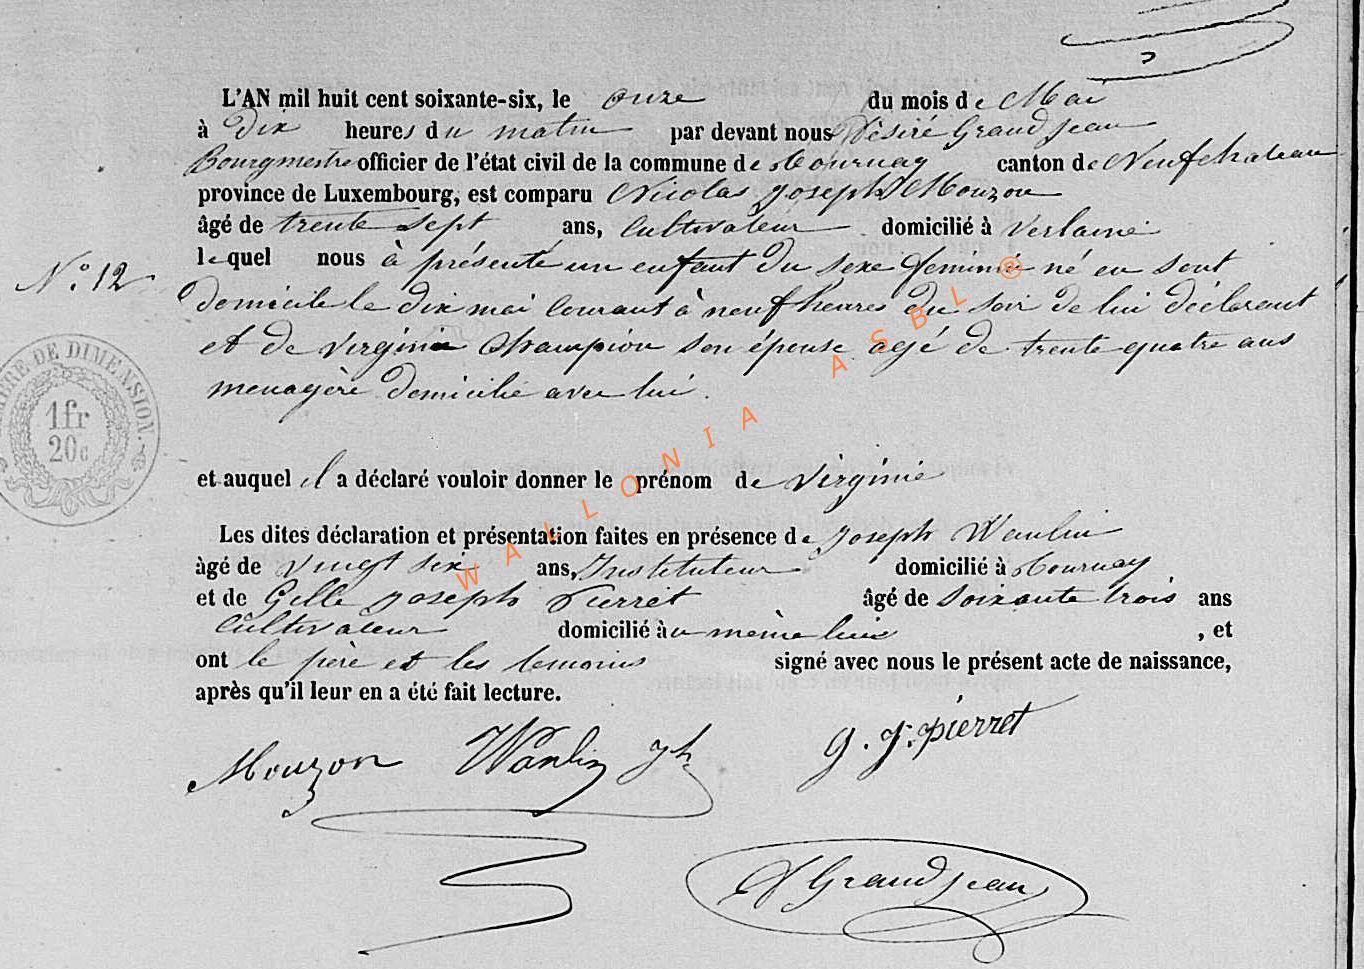 L'AN mil huit cent soixante-six, le onze du mois de Mai
à Dix heures du matin par devant nous Désiré Grandjean
Bourgmestre officier de l'état civil de la commune de Tournay canton de Neufchateau
province de Luxembourg, est comparu Nicolas Joseph Mouzon
âgé de trente sept ans, Cultivateur domicilié à Verlaine
lequel nous à présenté un enfant Du sexe feminin né en sont
N.° 12
domicile le dix mai Courant à neuf heures Du Soir De lui déclarant
et De Virginie Champion son épouse agé De trente quatre ans
menagère domicilié avec lui.
TIMBRE DE DIMENSION.
1fr
20c
et auquel il a déclaré vouloir donner le prénom de Virginie
Les dites déclaration et présentation faites en présence de Joseph Wanlin
àgé de vingt six ans, Instituteur domicilié à Tournay
et de Gille Joseph Pierret âgé de Soixante trois ans
Cultivateur domicilié au même lieu , et
ont le père et les temoins signé avec nous le présent acte de naissance,
après qu'il leur en a été fait lecture.
Mouzon Wanlin Jh G. J. pierret
D Grandjean
WALLONIA ASBL ®